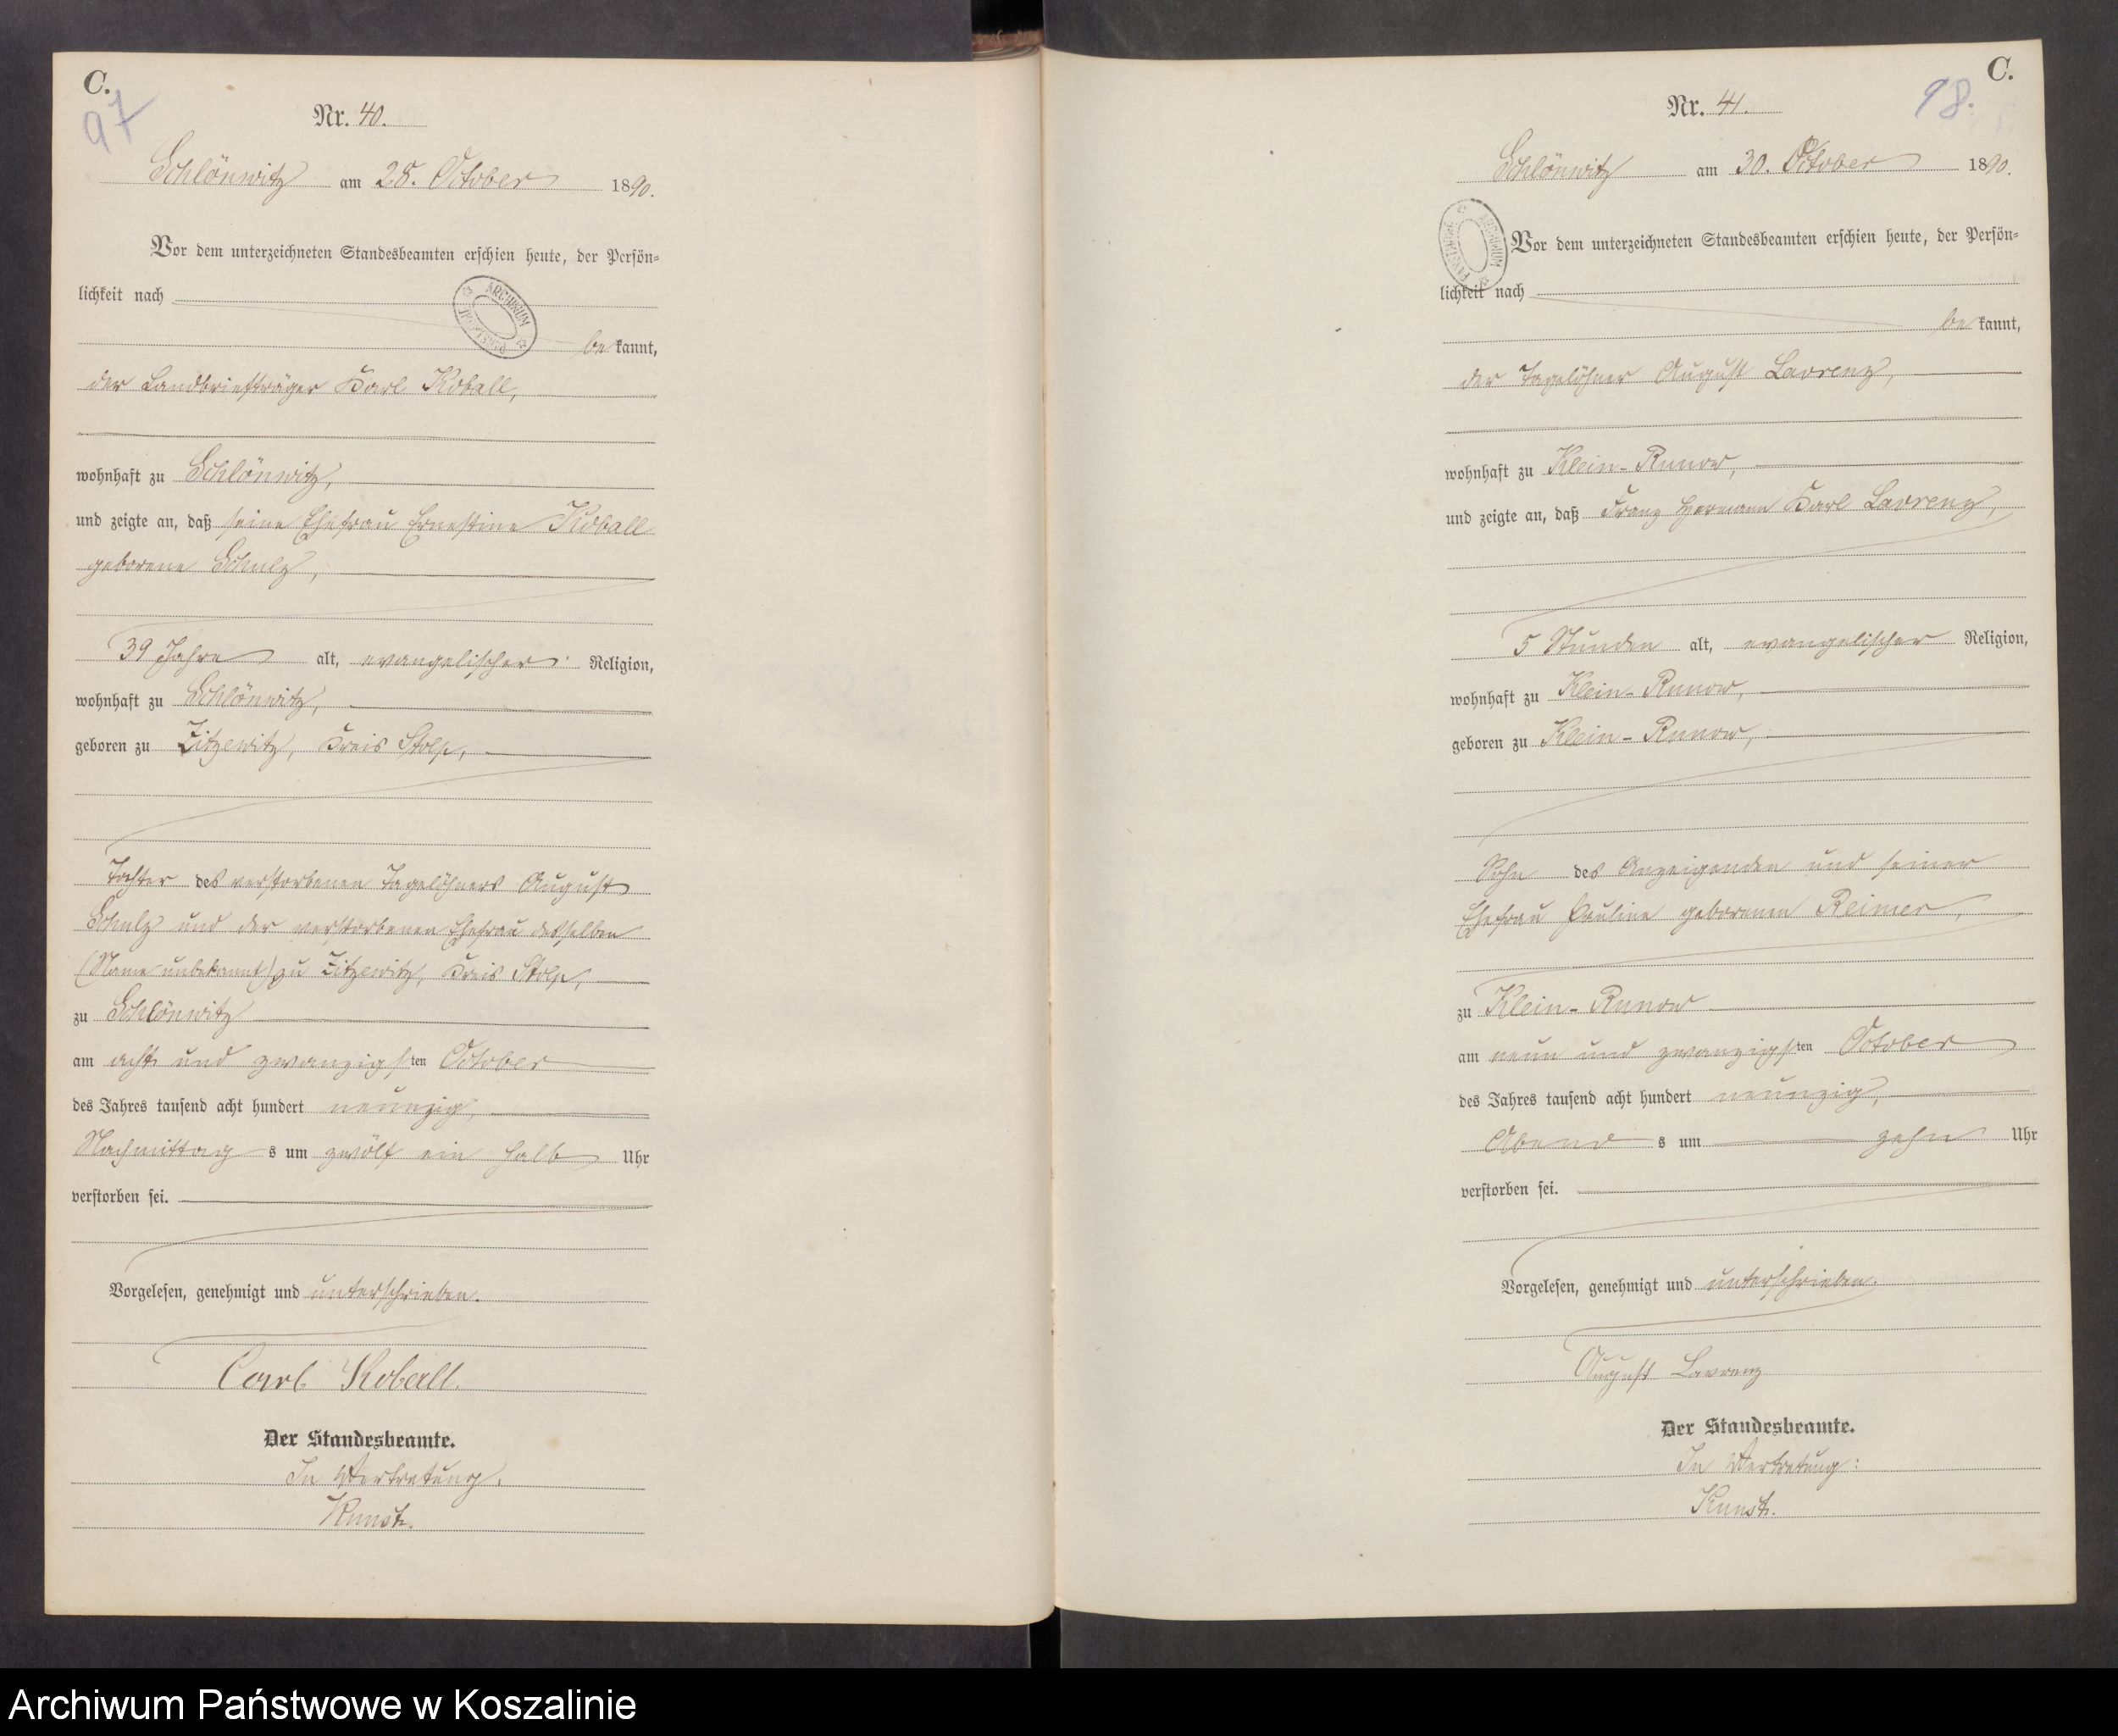 C.
97
Nr. 40.
Schlönwitz am 28. October 1890.
Vor dem unterzeichneten Standesbeamten erschien heute, der Persön-
lichkeit nach
bekannt,
der Landbriefträger Karl Koball,
wohnhaft zu Schlönwitz,
und zeigte an, daß seine Ehefrau Ernestine Koball
geborene Schulz,
39 Jahre alt, evangelischer Religion,
wohnhaft zu Schlönwitz,
geboren zu Zitzewitz, Kreis Stolp,
Tochter des verstorbenen Tagelöhners August
Schulz und der verstorbenen Ehefrau desselben
(Name unbekannt) zu Zitzewitz, Kreis Stolp,
zu Schlönwitz
am acht und zwanzigsten October
des Jahres tausend acht hundert neunzig,
Nachmittags um zwölf ein halb Uhr
verstorben sei.
Vorgelesen, genehmigt und unterschrieben.
Carl Koball.
Der Standesbeamte.
In Vertretung:
Kunst.
C.
98.
Nr. 41.
Schlönwitz am 30. October 1890.
ARCHIWUM
Vor dem unterzeichneten Standesbeamten erschien heute, der Persön-
lichkeit nach
bekannt,
der Tagelöhner August Lavrenz,
wohnhaft zu Klein-Runow,
und zeigte an, daß Franz Hermann Karl Lavrenz,
5 Stunden alt, evangelischer Religion,
wohnhaft zu Klein-Runow,
geboren zu Klein-Runow,
Sohn des Anzeigenden und seiner
Ehefrau Pauline geborenen Reimer,
zu Klein-Runow
am neun und zwanzigsten October
des Jahres tausend acht hundert neunzig,
Abends um zehn Uhr
verstorben sei.
Vorgelesen, genehmigt und unterschrieben.
August Lavrenz
Der Standesbeamte.
In Vertretung:
Kunst.
Archiwum Państwowe w Koszalinie